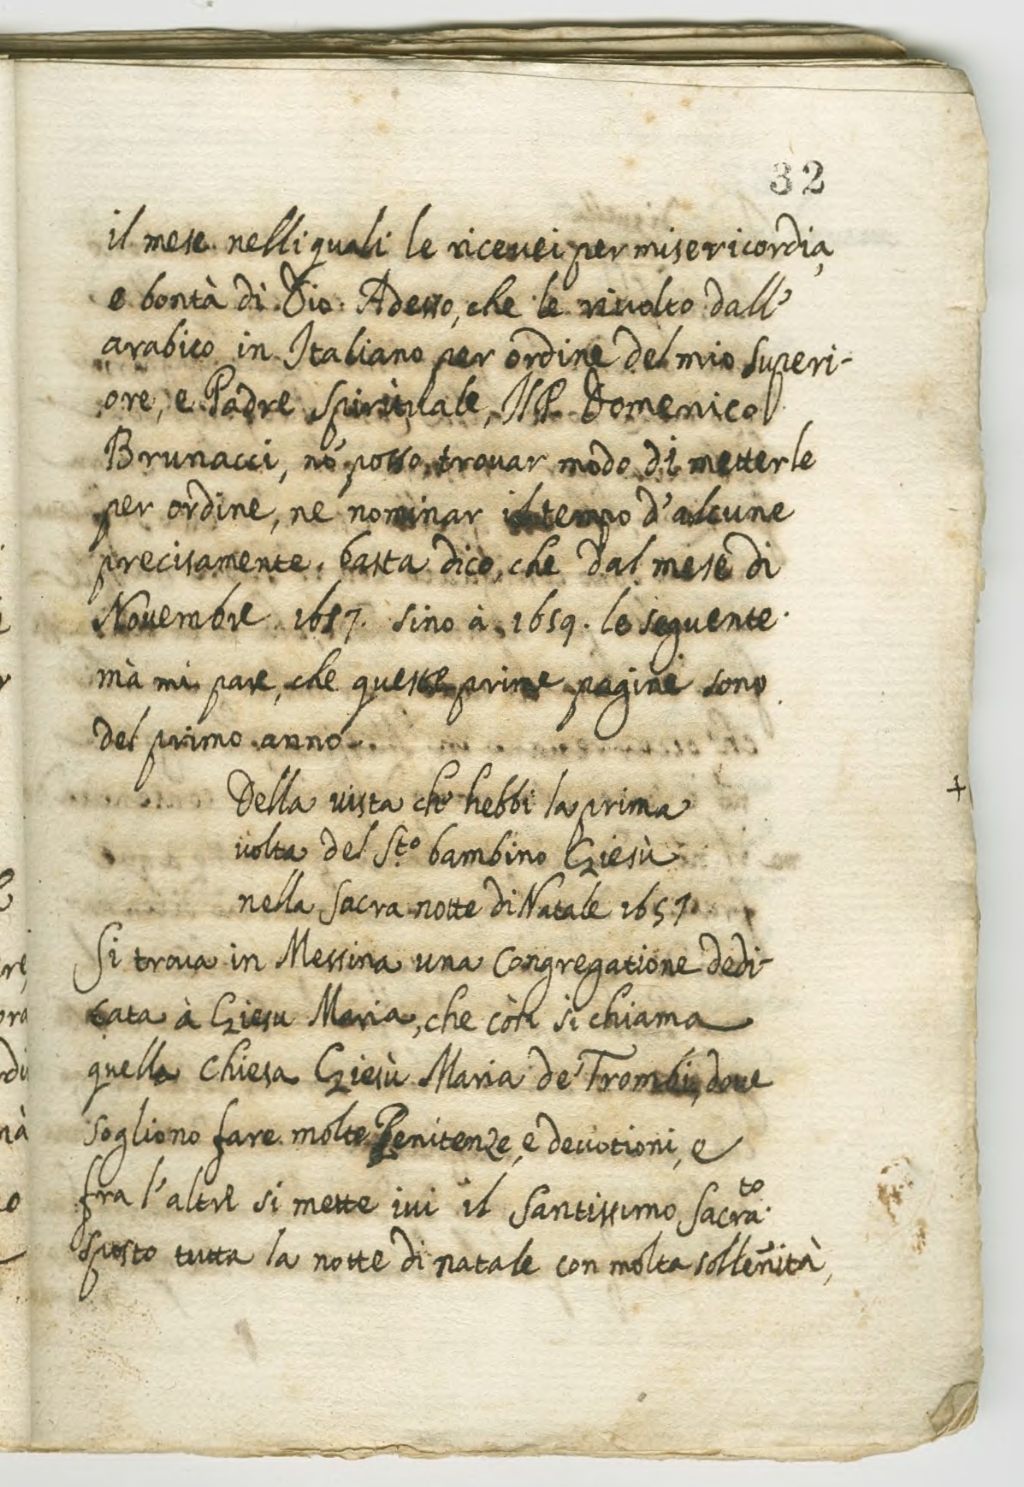 32
il mese nelli quali le riceuei per misericordia,
e bontà di Dio. Adesso, che le riuolto dall'
arabico in Italiano per ordine del mio Superi-
ore, e Padre Spirituale, Il P. Domenico
Brunacci, nō posso trouar modo di metterle
per ordine, ne nominar il tempo d'alcune
precisamente. basta dico, che dal mese di
Nouembre 1657. sino à 1659. le seguente.
mà mi pare, che queste prime pagine sono
del primo anno.
Della uista ch' hebbi la prima
uolta del Sto bambino Giesù
nella Sacra notte di Natale 1657
Si troua in Messina una Congregatione dedi-
cata à Giesu Maria, che così si chiama
quella Chiesa Giesù Maria de' Trombi, doue
sogliono fare molte Penitenze, e deuotioni, e
fra l'altre si mette iui il Santissimo Sacrato.
sposto tutta la notte di natale con molta sollen̄ità,
+